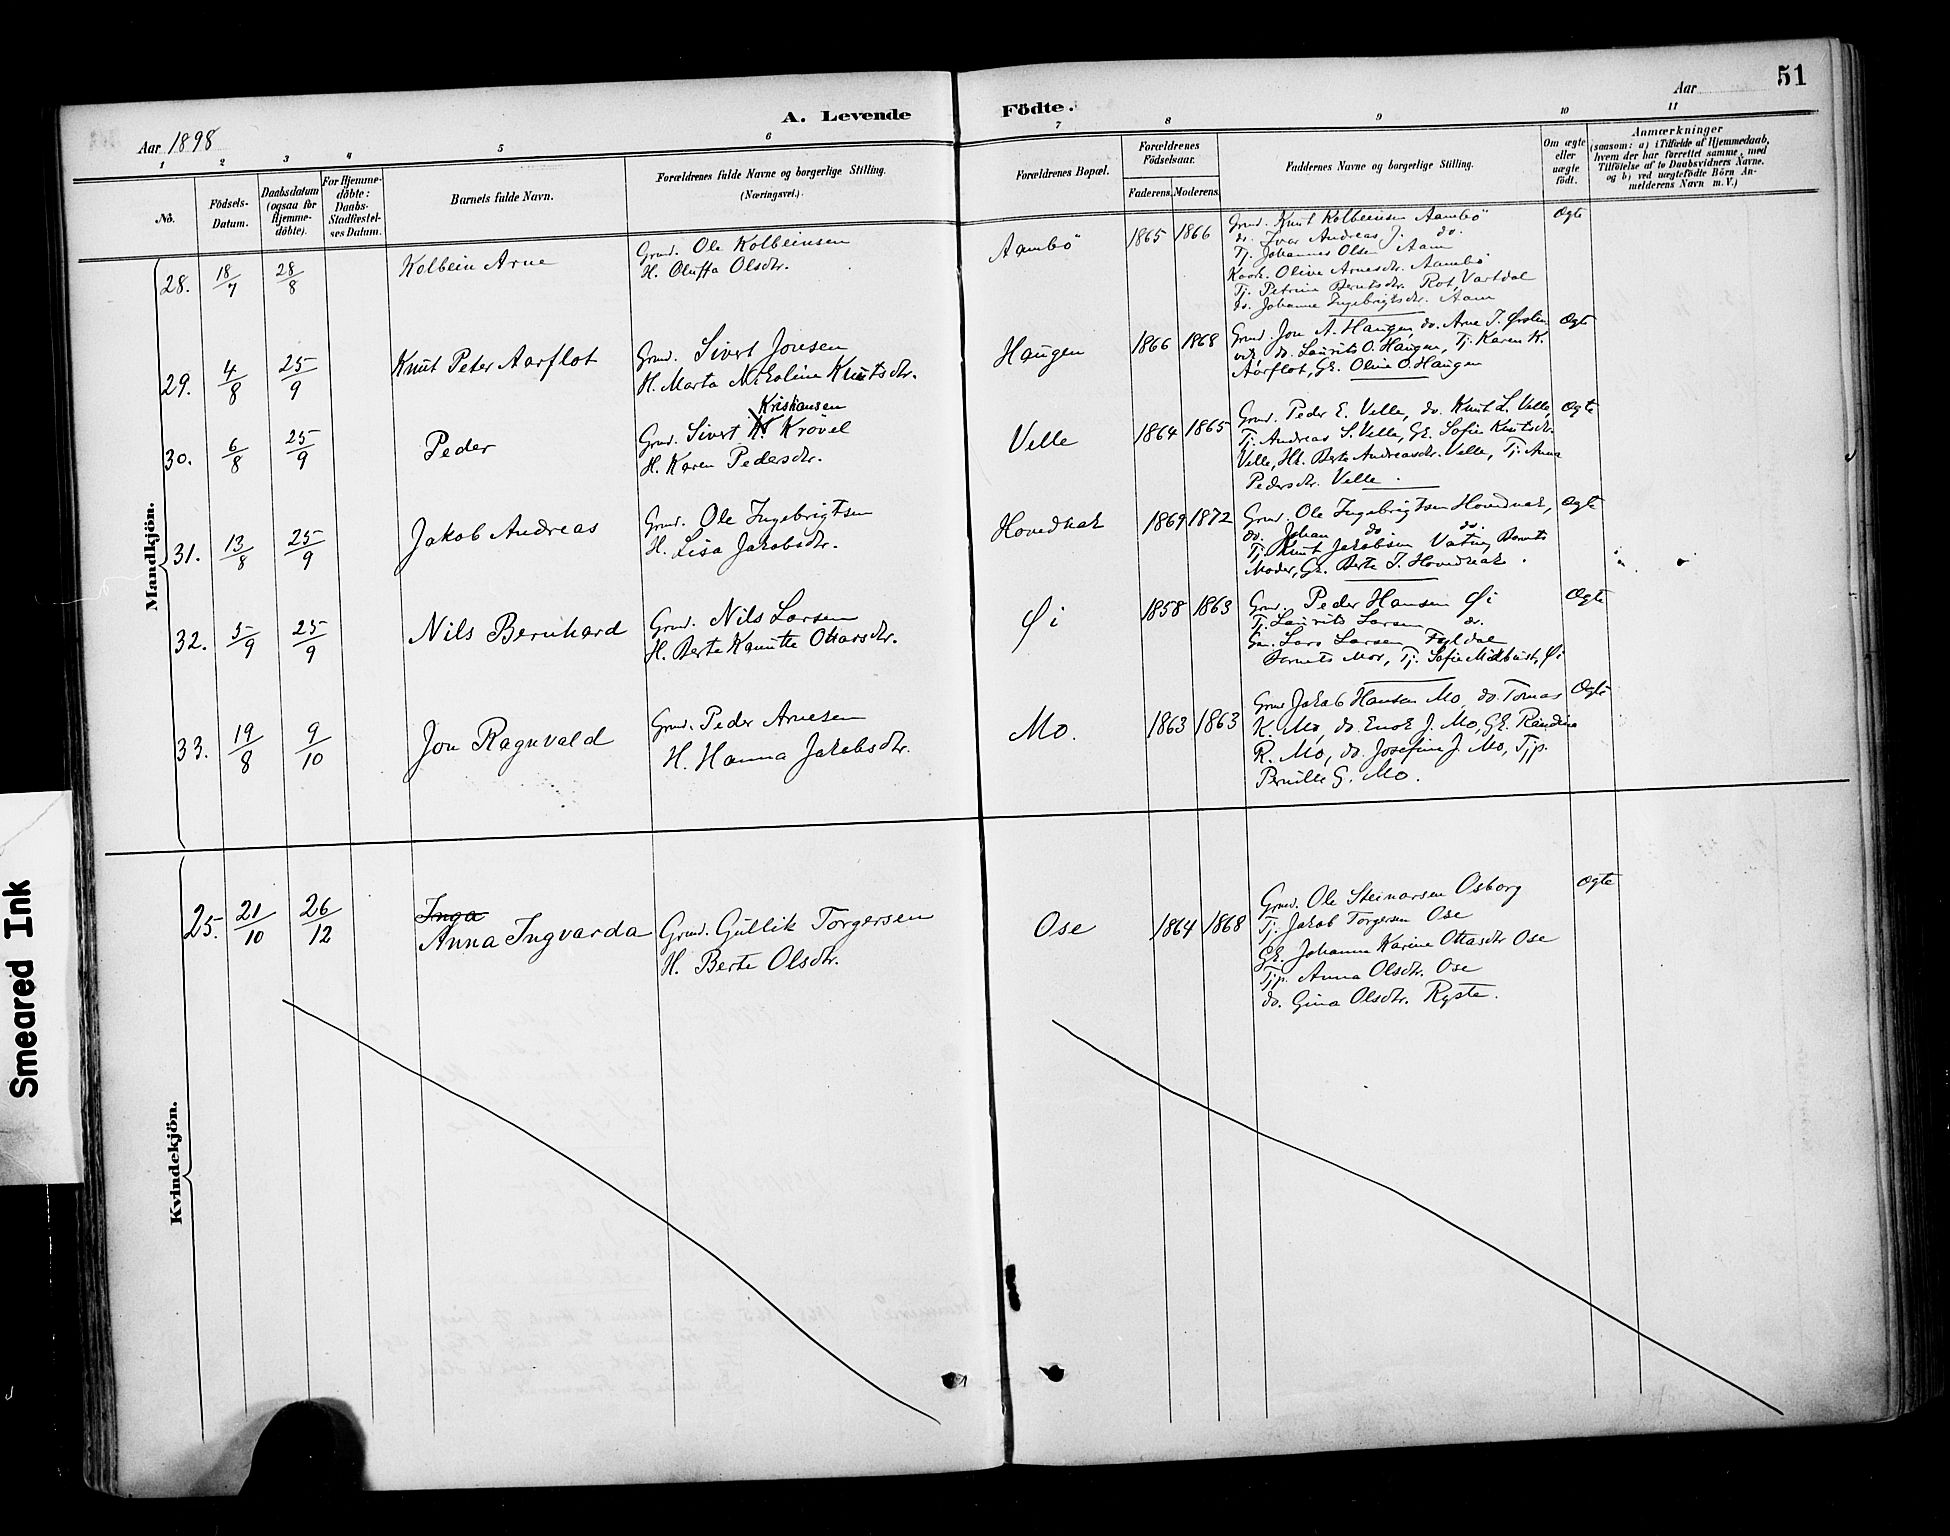 51
A. Levende Födte.
Aar 1898
Aar
1 2 3 4 5 6 7 8 9 10 11
No.
Födsels-Datum.
Daabsdatum (ogsaa for Hjemme-döbte).
For Hjemme-döbte: Daabs-Stadfæstel-ses Datum.
Barnets fulde Navn.
Forældrenes fulde Navne og borgerlige Stilling.
(Næringsvei.)
Forældrenes Bopæl.
Forældrenes Födselsaar.
Faderens. Moderens.
Faddernes Navne og borgerlige Stilling.
Om ægte eller uægte födt.
Anmærkninger
(saasom: a) i Tilfælde af Hjemmedaab,
hvem der har forrettet samme, med
Tilföielse af to Daabsvidners Navne.
og b) ved uægtefödte Börn An-
melderens Navn m. V.)
Mandkjön.
28. 18/7 28/8 Kolbein Arne
Grmd. Ole Kolbeinsen
H. Oluffa Olsdtr.
Aambö 1865 1866
Grmd. Knut Kolbeinsen Aambö
do. Ivar Andreas J. do.
Tj. Johannes Olsen Aam
Kaark. Olive Arnesdtr. Aambö
Tj. Petrine Berntsdtr. Rot, Vartdal
do. Johanne Ingebrigtsdtr. Aam
Ægte
29. 4/8 25/9 Knut Peter Aarflot
Grmd. Sivert Jonsen
H. Marta Nikoline Knutsdtr.
Haugen 1866 1868
Grmd. Jon A. Haugen, do. Arne J. Ørsten-
vik, do. Laurits O. Haugen, Tj. Karen K.
Aarflot, Gk. Oline O. Haugen
Ægte
30. 6/8 25/9 Peder
Kristiansen
Grmd. Sivert K. Krövel
H. Karen Pedersdtr.
Velle 1864 1865
Grmd. Peder E. Velle, do. Knut L. Velle,
Tj. Andreas S. Velle, Gk. Sofie Knutsdtr.
Velle, Hk. Berte Andreasdtr. Velle, Tj. Anna
Pedersdtr. Velle.
Ægte
31. 13/8 25/9 Jakob Andreas
Grmd. Ole Ingebrigtsen
H. Lisa Jakobsdtr.
Hovednak 1869 1872
Grmd. Ole Ingebrigtsen Hovednak,
do. Johan do do.
Tj. Knut Jakobsen Vatne, Barnets
Moder, Gk. Berte I. Hovednak.
Ægte
32. 5/9 25/9 Nils Bernhard
Grmd. Nils Larsen
H. Berte Kanutte Ottarsdtr.
Øi 1858 1863
Grmd. Peder Hansen Øi
Tj. Laurits Larsen do.
Gm. Lars Larsen
Barnets Mor, Tj. Sofie Mikbust, Øi
Ægte
33. 19/8 9/10 Jon Ragnvald
Grmd. Peder Arnesen
H. Hanna Jakobsdtr.
Mo. 1863 1863
Grmd Jakob Hansen Mo, do. Tomas
K. Mo, do. Enok J. Mo, Gk. Randine
R. Mo, do. Josefine J. Mo, Tjp.
Pernille G. Mo.
Ægte
Kvindekjön.
25. 21/10 26/12 Inga
Anna Ingvarda
Grmd. Gullik Torgersen
H. Berte Olsdtr.
Ose 1864 1868
Grmd. Ole Steinarsen Osborg
Tj. Jakob Torgersen Ose
Gk. Johanna Karine Ottasdtr Ose
Tjp. Anna Olsdtr. Ose
do. Gina Olsdtr. Ryste.
Ægte
Smeared Ink